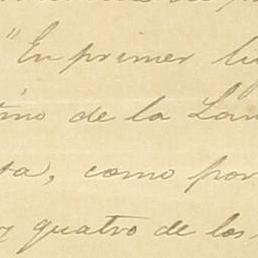 "En primer lu
de la Lan
como por
quatro de los